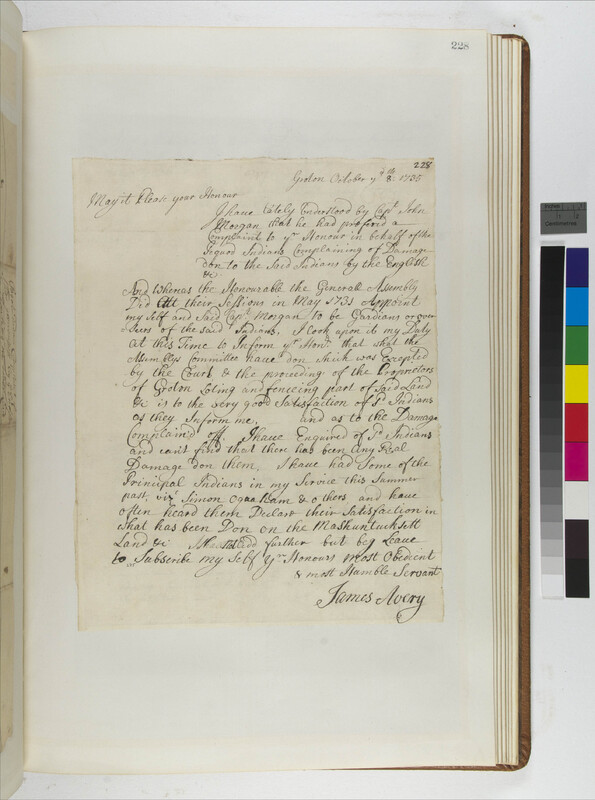 228
228
Groton October yͤ 8ᵗʰ 1735
May it Please your Honour
I haue lately Understood by Capᵗ John
Morgan that he had profered a
Complaint to yʳ Honour in behalf of the
Pequod Indians Complaining of Damage
don to the Said Indians by the English
&c
And whereas the Honourable the Generall Assembly
Did Att their Sessions in May 1731 Appoint
my Self and Said Capᵗ Morgan to be Gardians or over
Seers of the said Indians. I look upon it my Duty
at this Time to Inform yʳ Honʳ that what the
Assemblys Committee haue don which was Excepted
by the Court & the proceding of the Proprietors
of Groton Loting and fenceing part of Said Land
&c is to the very good Satisfaction of Sᵈ Indians
as they Inform me, and as to the Damage
Complain'd off. I haue Enquired of Sᵈ Indians
and can't find that there has been Any Real
Damage don them. I haue had Some of the
Principal Indians in my Service this Summer
past, vizᵗ Simon & others and haue
often heard them Declare their Satisfaction in
what has been Don on the Mashuntucksett
Land &c add further but beg Leaue
to Subscribe my Self yʳ Honours most Obedient
& most Humble Servant
James Avery